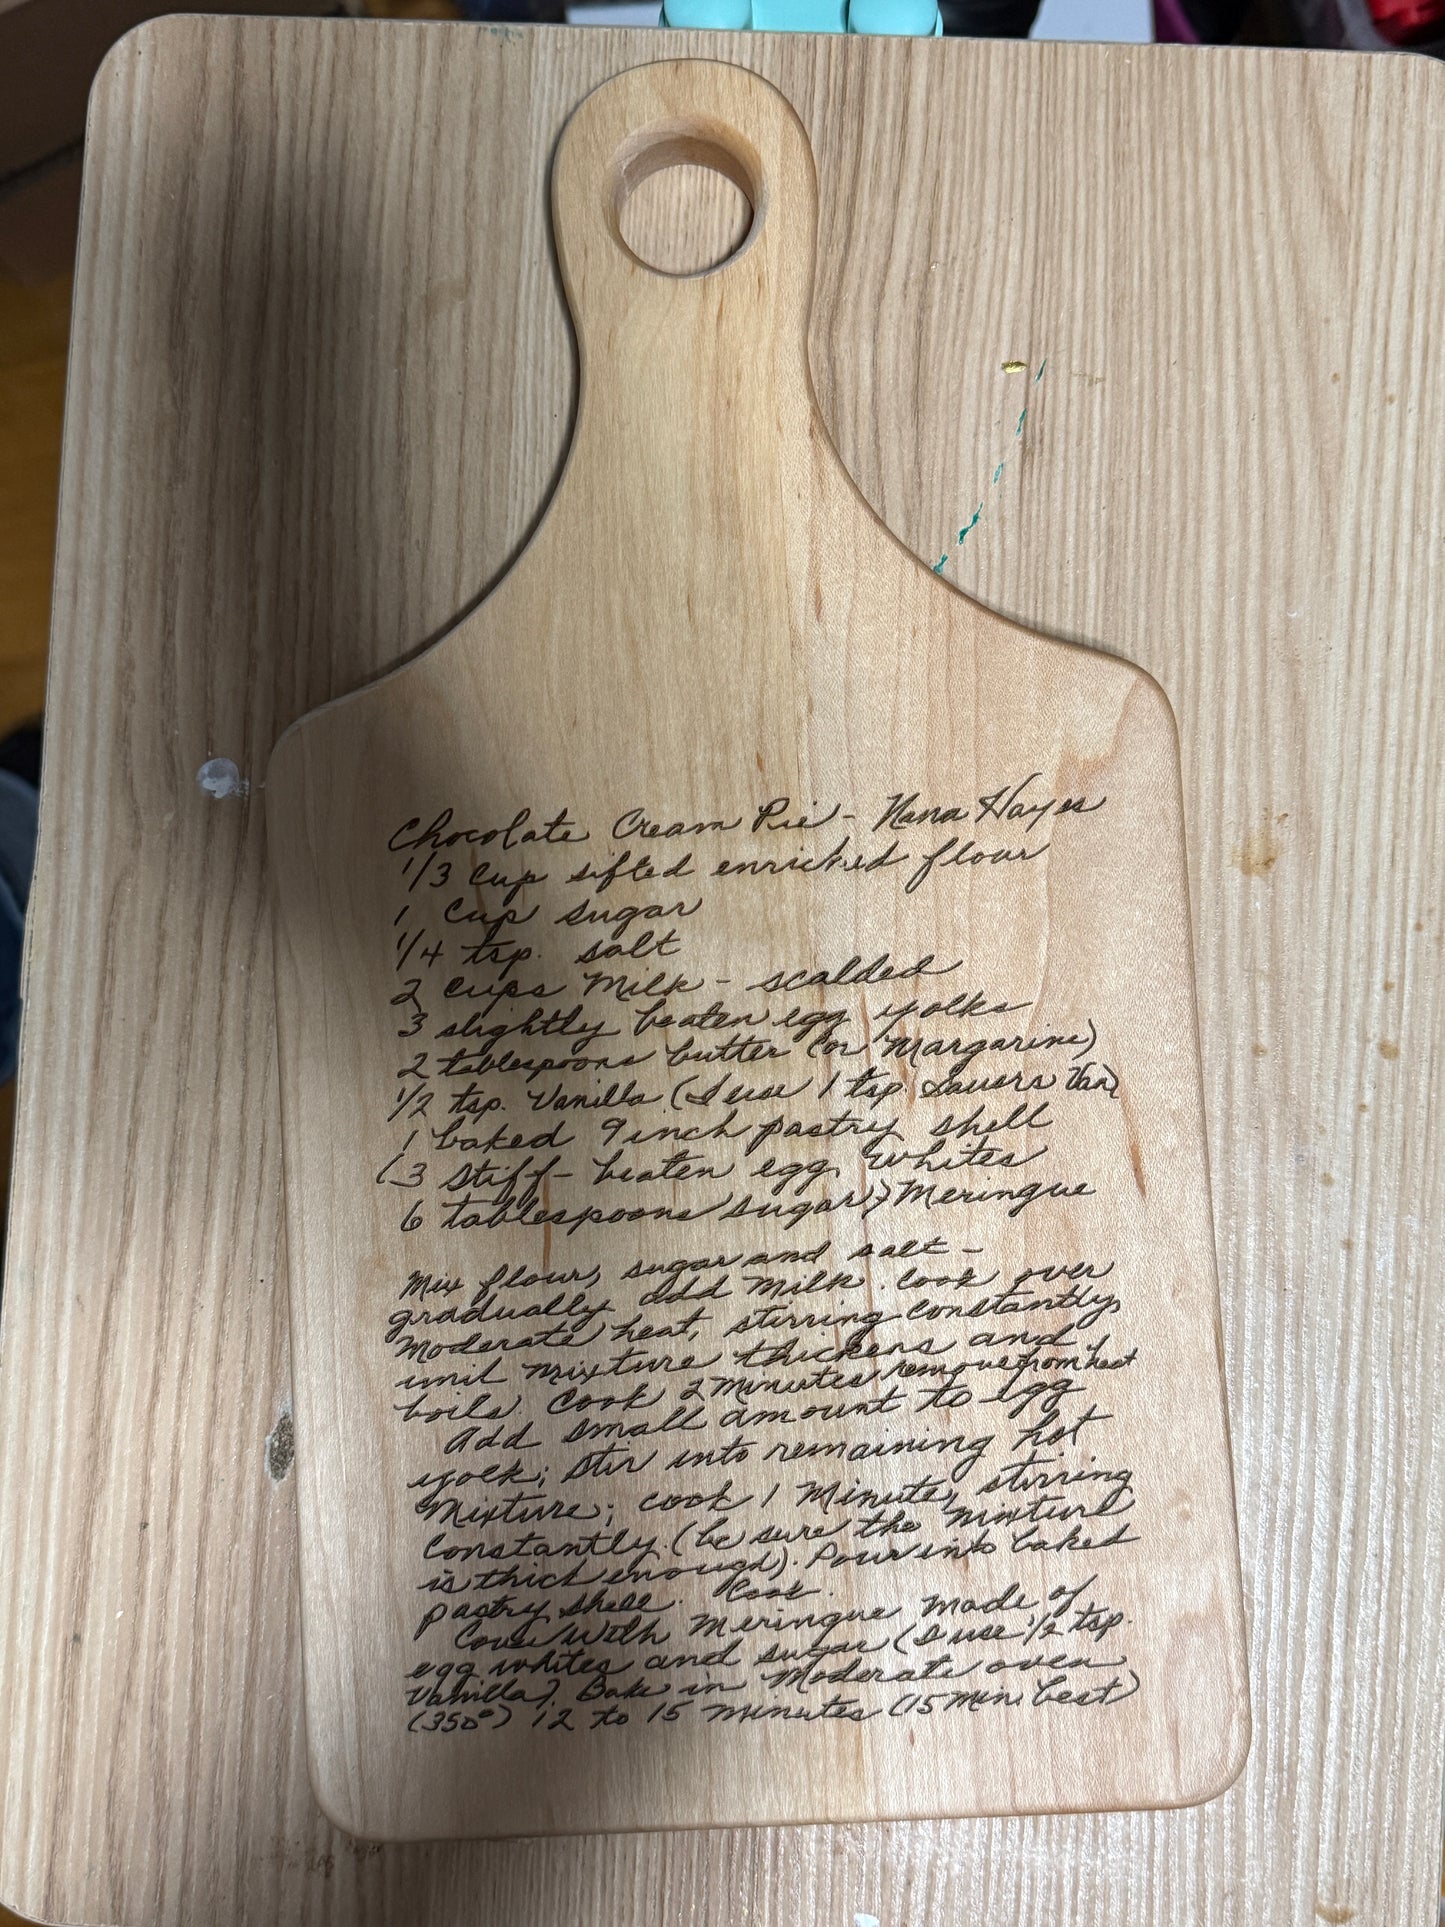 Chocolate Cream Pie - Nana Hayes
1/3 Cup sifted enriched flour
1 Cup sugar
1/4 tsp. salt
2 cups Milk - scalded
3 slightly beaten egg yolks
2 tablespoons butter (or Margarine)
1/2 tsp. Vanilla (I use 1 tsp. Sauers Van)
1 baked 9 inch pastry shell
(3 stiff - beaten egg whites
6 tablespoons sugar) Meringue
Mix flour, sugar and salt -
gradually add Milk. Cook over
Moderate heat, stirring constantly,
until mixture thickens and
boils. Cook 2 minutes remove from heat
Add small amount to egg
yolk; stir into remaining hot
Mixture; cook 1 Minute, stirring
Constantly. (be sure the mixture
is thick enough). Pour into baked
pastry shell. Cool.
Cover with Meringue made of
egg whites and sugar (I use 1/2 tsp.
Vanilla). Bake in Moderate oven
(350°) 12 to 15 minutes (15 Min. best)